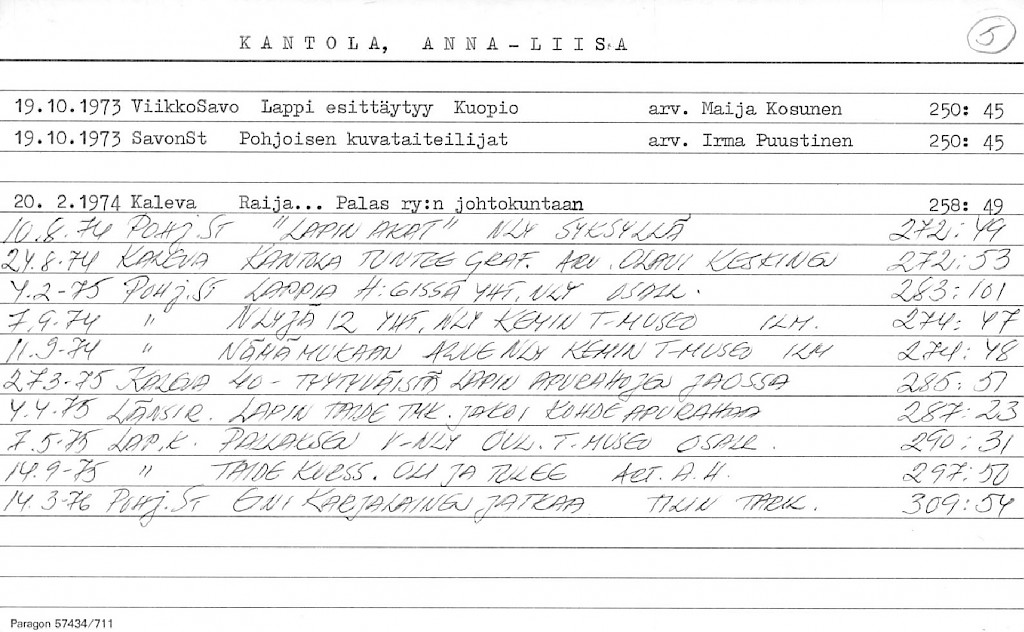 KANTOLA, ANNA-LIISA 5
19.10.1973 ViikkoSavo Lappi esittäytyy Kuopio arv. Maija Kosunen 250: 45
19.10.1973 SavonSt Pohjoisen kuvataiteilijat arv. Irma Puustinen 250: 45
20. 2.1974 Kaleva Raija... Palas ry:n johtokuntaan 258: 49
10.8.74 POHJ.ST "LAPIN AKAT" NLY SYKSYLLÄ 272:49
24.8.74 KALEVA KANTOLA TUNTEE GRAF. ARV. OLAVI KESKINEN 272:53
4.2-75 POHJ.ST LAPPIA H:GISSÄ YHT.NLY OSALL. 283:101
7.9.74 " NLYJÄ 12 YHT.NLY KEMIN T-MUSEO ILM. 274:47
11.9-74 " NÄMÄ MUKAAN ALUE NLY KEMIN T-MUSEO ILM 274:48
27.3-75 KALEVA 40- TYYTYVÄISTÄ LAPIN APURAHOJEN JAOSSA 285:51
4.4.75 LÄNSIP. LAPIN TAIDE TMK. JAKOI KOHDEAPURAHAA 287:23
7.5.75 LAP.K. PALLAKSEN V-NLY OUL. T.MUSEO OSALL. 290:31
14.9-75 " TAIDE KURSS. OLI JA TULEE ART. A.H. 297:50
14.3-76 POHJ.ST ENI KARJALAINEN JATKAA TILIN TARK. 309:54
Paragon 57434/711